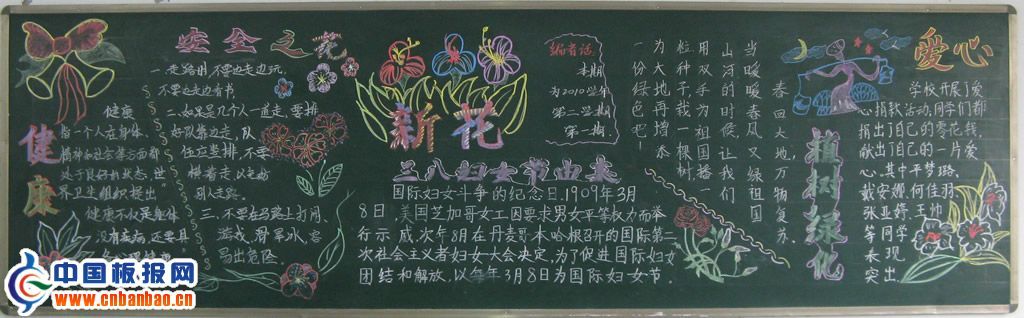 健康
健康
指一个人在身体、
精神和社会等方面都
处于良好的状态，世
界卫生组织提出"
健康不仅是身体
没有疾病，还要具
安全之花
一、走路时不要边走边玩，
不要边走边看书
二、如果是几个人一道走，要排
好队靠边走，队
伍应竖排，不要
横着走以免妨
别人走路。
三、不要在马路上打闹、
游戏、滑旱冰，容
易出危险。
新花
编者话：
本期
为2010学年
第二学期
第一期。
三八妇女节由来
国际妇女斗争的纪念日，1909年3月
8日，美国芝加哥女工因要求男女平等权力而举
行示威，次年8月在丹麦哥本哈根召开的国际第二
次社会主义者妇女大会决定，为了促进国际妇女
团结和解放，以每年3月8日为国际妇女节。
植树绿化
春回大地，万物复苏，
当暖暖春风又绿祖国
山河的时候，让我们
用双手为祖国播一
粒种，再栽一棵树，
为大地干我
一份绿色吧！增
爱心
学校开展了爱
心捐款活动，同学们都
捐出了自己的零花钱，
献出了自己的一片爱
心。其中平梦路、
戴安娜、何佳羽、
张亚婷、王帅
等同学表现
突出。
中国板报网
www.cnbanbao.cn